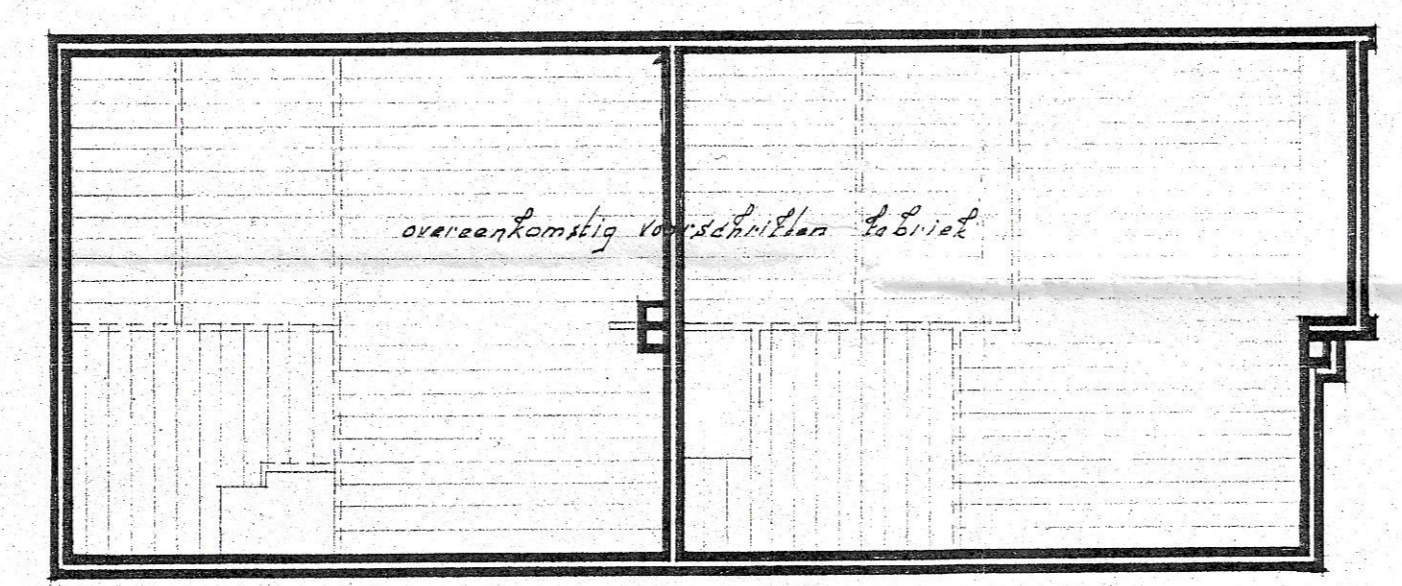 overeenkomstig voorschriften fabriek